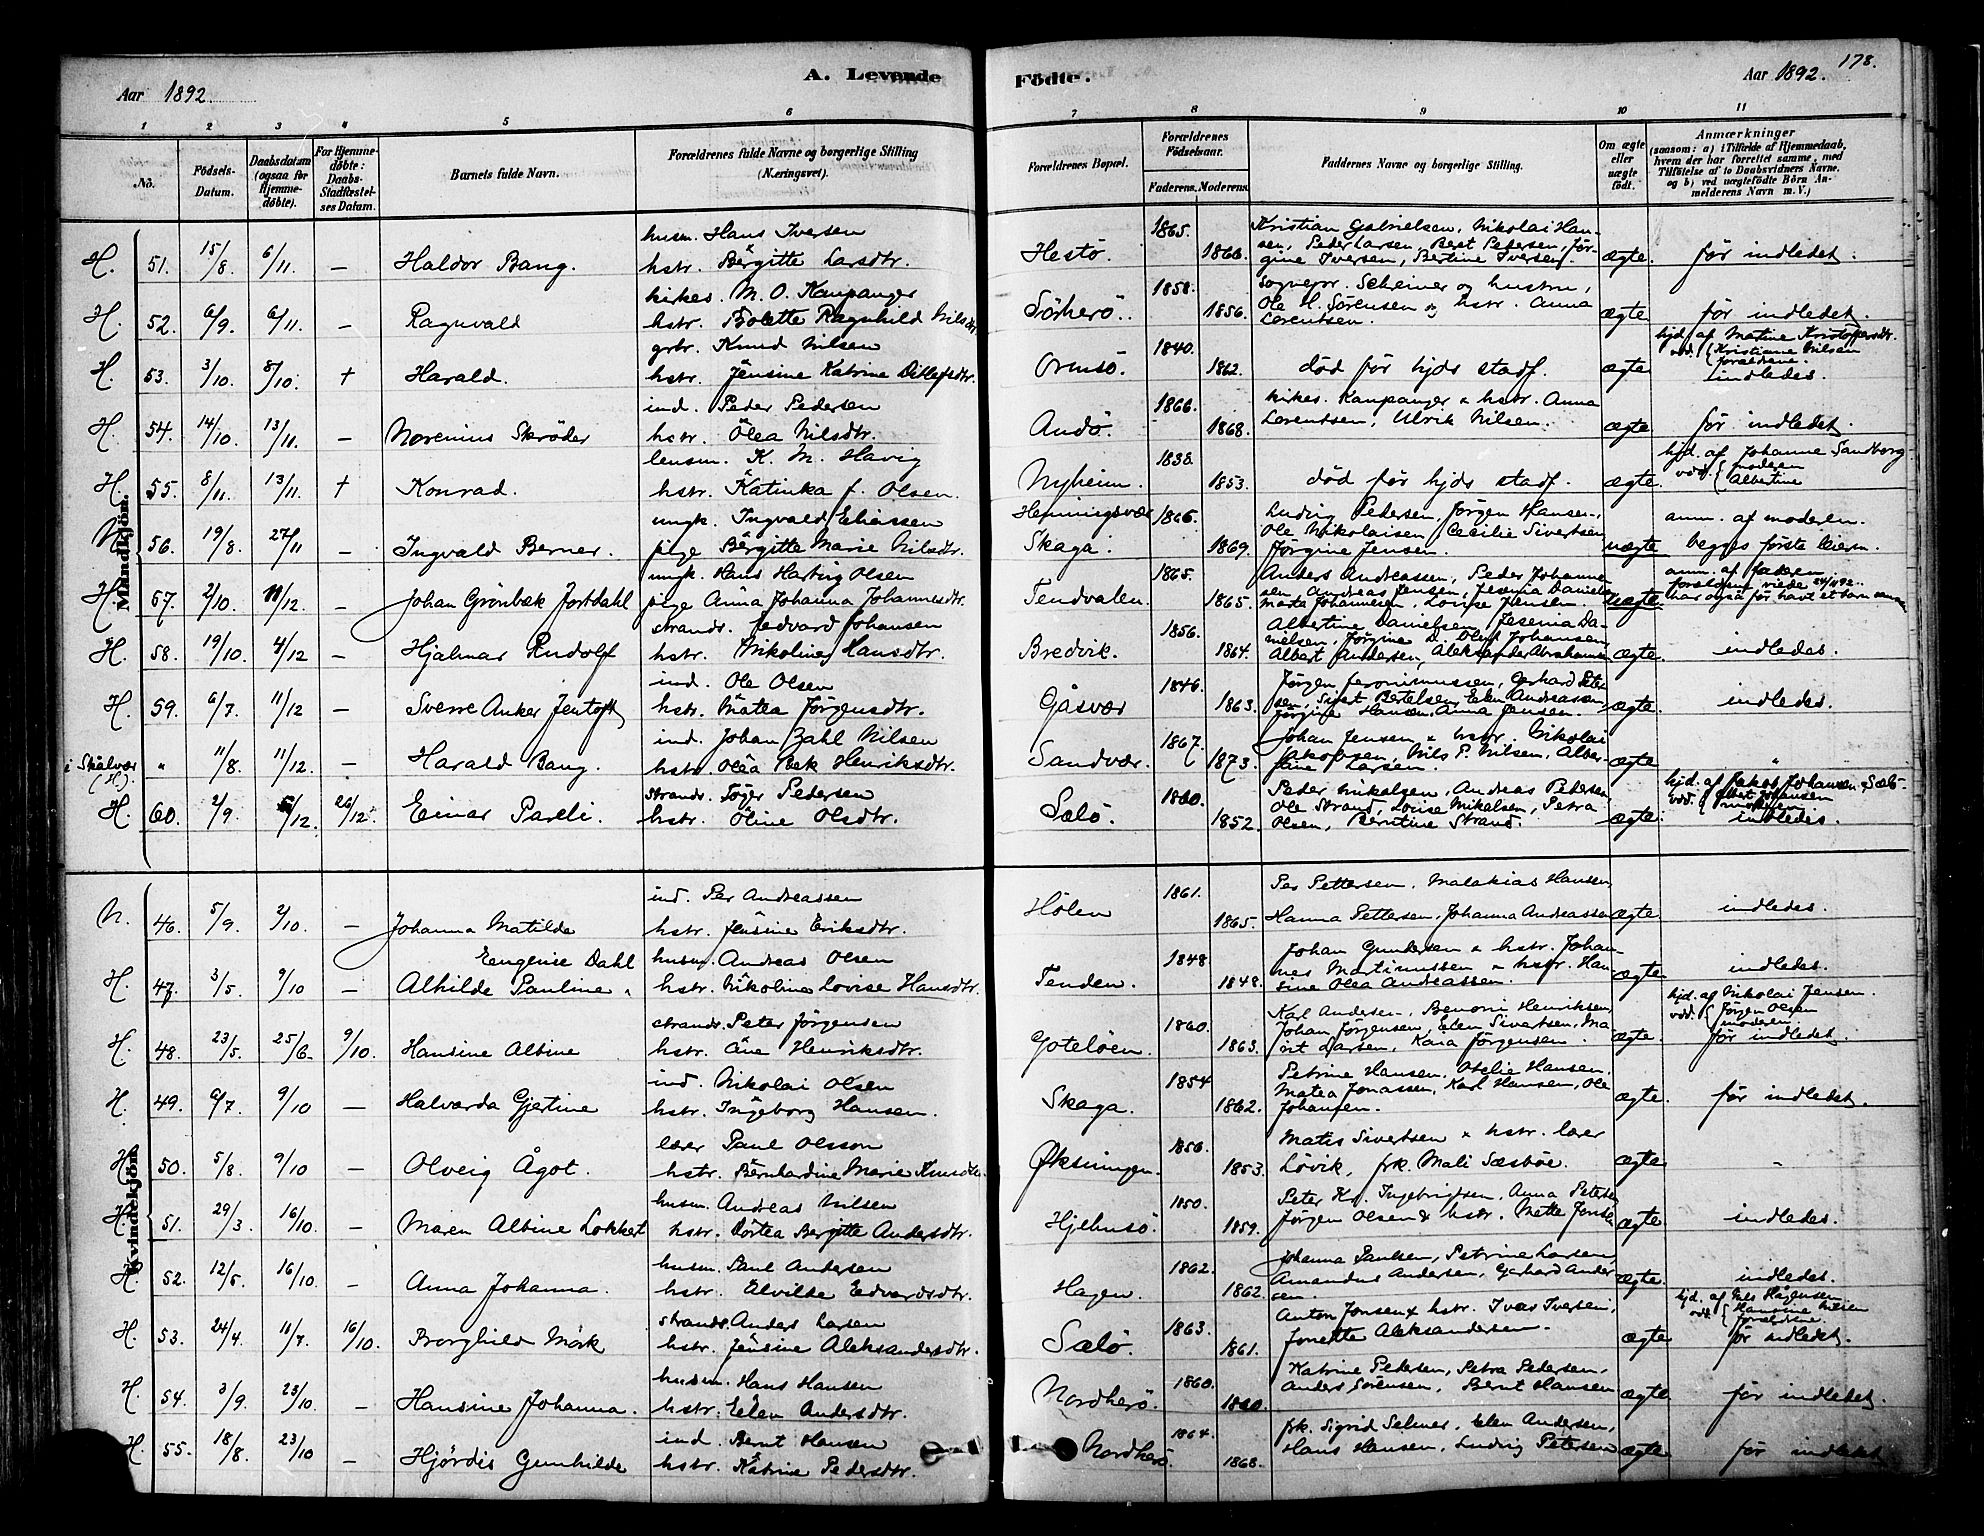 A. Levende Födte.
178.
Aar 1892.
Aar 1892.
1 2 3 4 5 6 7 8 9 10 11
No.
Födsels-Datum.
Daabsdatum (ogsaa for Hjemme-döbte).
For Hjemme-döbte: Daabs-Stadfæstel-ses Datum.
Barnets fulde Navn.
Forældrenes fulde Navne og borgerlige Stilling (Næringsvei).
Forældrenes Bopæl.
Forældrenes Födselsaar.
Faderens. Moderens.
Faddernes Navne og borgerlige Stilling.
Om ægte eller uægte födt.
Anmærkninger
(saasom: a) i Tilfælde af Hjemmedaab, hvem der har forrettet samme, med Tilföielse af to Daabsvidners Navne, og b) ved uægtefödte Börn An-melderens Navn m. V.)
Mandkjön.
H. 51. 15/8 6/11 — Haldor Bang. husm. Hans Iversen
hstr. Bergitte Larsdtr. Hestö. 1865. 1866. Kristian Gabrielsen, Nikolai Han-
sen, Peder Larsen, Beret Pedersen, Jör-
gine Iversen, Bertine Iversen. ægte för indledet.
H. 52. 6/9. 6/11. — Ragnvald kirkes. M. O. Kaupanger
hstr. Bolette Ragnhild Nilsdtr Sörherö. 1858. 1856. Sognepr. Scheiner og hustru,
Ole H. Sörensen og hstr. Anna
Lorentsen. ægte för indledet.
H. 53. 3/10. 8/10. † Harald. grbr. Knud Nilsen
hstr. Jensine Katrine Ditlefsdtr. Ormsö. 1840. 1862. död för hjds stadf. ægte hjd. af Matine Kristoffersdtr.
vdd. Kristiane Nilsen
forældrene.
indledes.
H. 54. 14/10. 13/11. — Norenius Skröder ind. Peder Pedersen
hstr. Olea Nilsdtr. Andö. 1866. 1868. kirkes. Kaupanger & hstr. Anna
Lorentsen, Ulrik Nilsen. ægte. för indledet.
H. 55. 8/11. 13/11. † Konrad. lensm. K. M. Havig
hstr. Katinka f. Olsen. Nyheim. 1838. 1853. död för hjds stadf. ægte. hjd. af Johanne Sandborg
vdd. moderen
Albertine
N. 56. 19/8. 27/11 — Ingvald Berner. ungk. Ingvald Eliassen
pige Bergitte Marie Nilsdtr. Henningsvær
Skaga. 1866. 1869. Ludvig Pedersen, Jörgen Hansen,
Ole Nikolaisen, Cecilie Sivertsen
Jörgine Jensen. uægte anm. af moderen.
begges förste leierm.
H. 57. 2/10. 11/12. — Johan Grönbæk Jostdahl ungk. Hans Hartvig Olsen
pige Anna Johanna Johannesdtr. Tendvalen. 1865. 1865. Anders Andreassen, Peder Johanne-
sen, Andreas Jensen, Jesenia Daniels
Marta Johannesen, Lovise Jensen. uægte. anm. af faderen.
forældrene viede 24/11 92.
har også för havt et barn sammen
H. 58. 19/10. 4/12 — Hjalmar Rudolf strands. Edvard Johansen
hstr. Nikoline Hansdtr. Bredvik. 1856. 1864. Albertine Danielsen, Jesenia Da-
nielsen, Jörgine D. Oluf Johansen,
Albert Andersen, Aleksander Abrahamsen ægte. indledes.
H. 59. 6/7. 11/12 — Sverre Anker Jentoft ind. Ole Olsen
hstr. Matea Jörgensdtr. Gåsvær 1846. 1863. Jörgen Jeronimussen, Gerhard Peter-
sen, Sivert Bertelsen, Elen Andreassen,
Jörgine Hansen, Anna Jensen. ægte. indledes.
i Skålvær (H). " 11/8. 11/12. — Harald Bang. ind. Johan Zahl Nilsen
hstr. Olea Bek Henriksdtr. Sandvær. 1867. 1873. Johan Jensen & hstr. Nikolai
Jakobsen, Nils P. Nilsen, Alber-
tine Larsen. ægte "
H. 60. 2/9. /12. 26/12. Einar Pareli. strands. Töger Pedersen
hstr. Oline Olsdtr. Sælö. 1860. 1852. Peder Mikelsen, Andreas Pedersen,
Ole Strand, Lovise Mikelsen, Petra
Olsen, Berntine Strand. ægte. hjd. af Jakob Johansen Sælö.
vdd. Albert Johansen
moderen
indledes.
Kvindekjön.
N. 46. 5/9. 2/10. — Johanna Matilde ind. Per Andreassen
hstr. Jensine Eriksdtr. Hölen 1861. 1865. Per Pettersen, Malakias Hansen,
Hanna Pettersen, Johanna Andreassen ægte. indledes.
H. 47. 3/5. 9/10 — Eengenise Dahl
Alhilde Pauline husm. Andreas Olsen
hstr. Nikoline Lovise Hansdtr. Tenden. 1848 1848. Johan Gundersen & hstr. Johan
nes Martinussen & hstr. Han
sine Olea Andreassen. ægte indledes.
H. 48. 23/5. 25/6. 9/10. Hansine Albine strands. Peter Jörgensen
hstr. Ane Henriksdtr. Goteloen. 1860. 1863. Karl Andersen, Benoni Henriksen,
Johan Jörgensen, Elen Sivertsen, Ma
rit Larsen, Kaia Jörgensen. ægte. hjd. af Nikolai Jensen.
vdd. Jörgen Olsen
moderen.
för indledet.
H. 49. 6/7. 9/10 — Halvarda Gjertine ind. Nikolai Olsen
hstr. Ingeborg Hansen. Skaga. 1854 1862. Petrine Hansen, Otelie Hansen,
Matea Jonassen, Karl Hansen, Ole
Johansen. ægte. för indledet.
H. 50. 5/8. 9/10 — Olveig Ågot. lærer Paul Olsson
hstr. Bernhardine Marie Knudsdtr. Öksningen. 1856. 1853. Matis Sivertsen & hstr. lærer
Lövik, frk. Mali Sæsböe. ægte -
H. 51. 29/3. 16/10. — Maren Albine Lokkert husm. Andreas Nilsen
hstr. Dortea Bergitte Andersdtr. Hjelmsö. 1850. 1859. Peter Kr. Ingebrigtsen, Anna Petersen
Jörgen Olsen & hstr. Mette Jensen ægte indledes.
H. 52. 12/5. 16/10. — Anna Johanna. husm. Paul Andersen
hstr. Elvilde Edvardsdtr. Hagen. 1862. 1862. Johanna Paulsen, Petrine Larsen,
Amandus Andersen, Gerhard Ander
sen. ægte. indledes.
H. 53. 24/4. 11/7. 16/10. Borghild Mörk strands. Anders Larsen
hstr. Jensine Aleksandersdtr. Sælö. 1863. 1861. Anton Jonsen & hstr. Ivar Iversen,
Jonette Aleksandersen. ægte hjd. af Nils Hagensen
vdd. Hansine Nilsen
forældrene
för indledet.
H. 54. 3/9. 23/10. — Hansine Johanna. husm. Hans Hansen
hstr. Elen Andersdtr. Nordherö. 1860. 1860. Katrine Pedersen, Petra Pedersen,
Anders Sörensen, Bernt Hansen ægte för indledet.
H. 55. 18/8. 23/10 — Hjördis Gunhilde ind. Bernt Hansen
hstr. Katrine Pedersdtr. Nordherö. 1864. 1868. frk. Sigrid Selmer, Elen Andersen,
Hans Hansen, Ludvig Petersen ægte för indledet